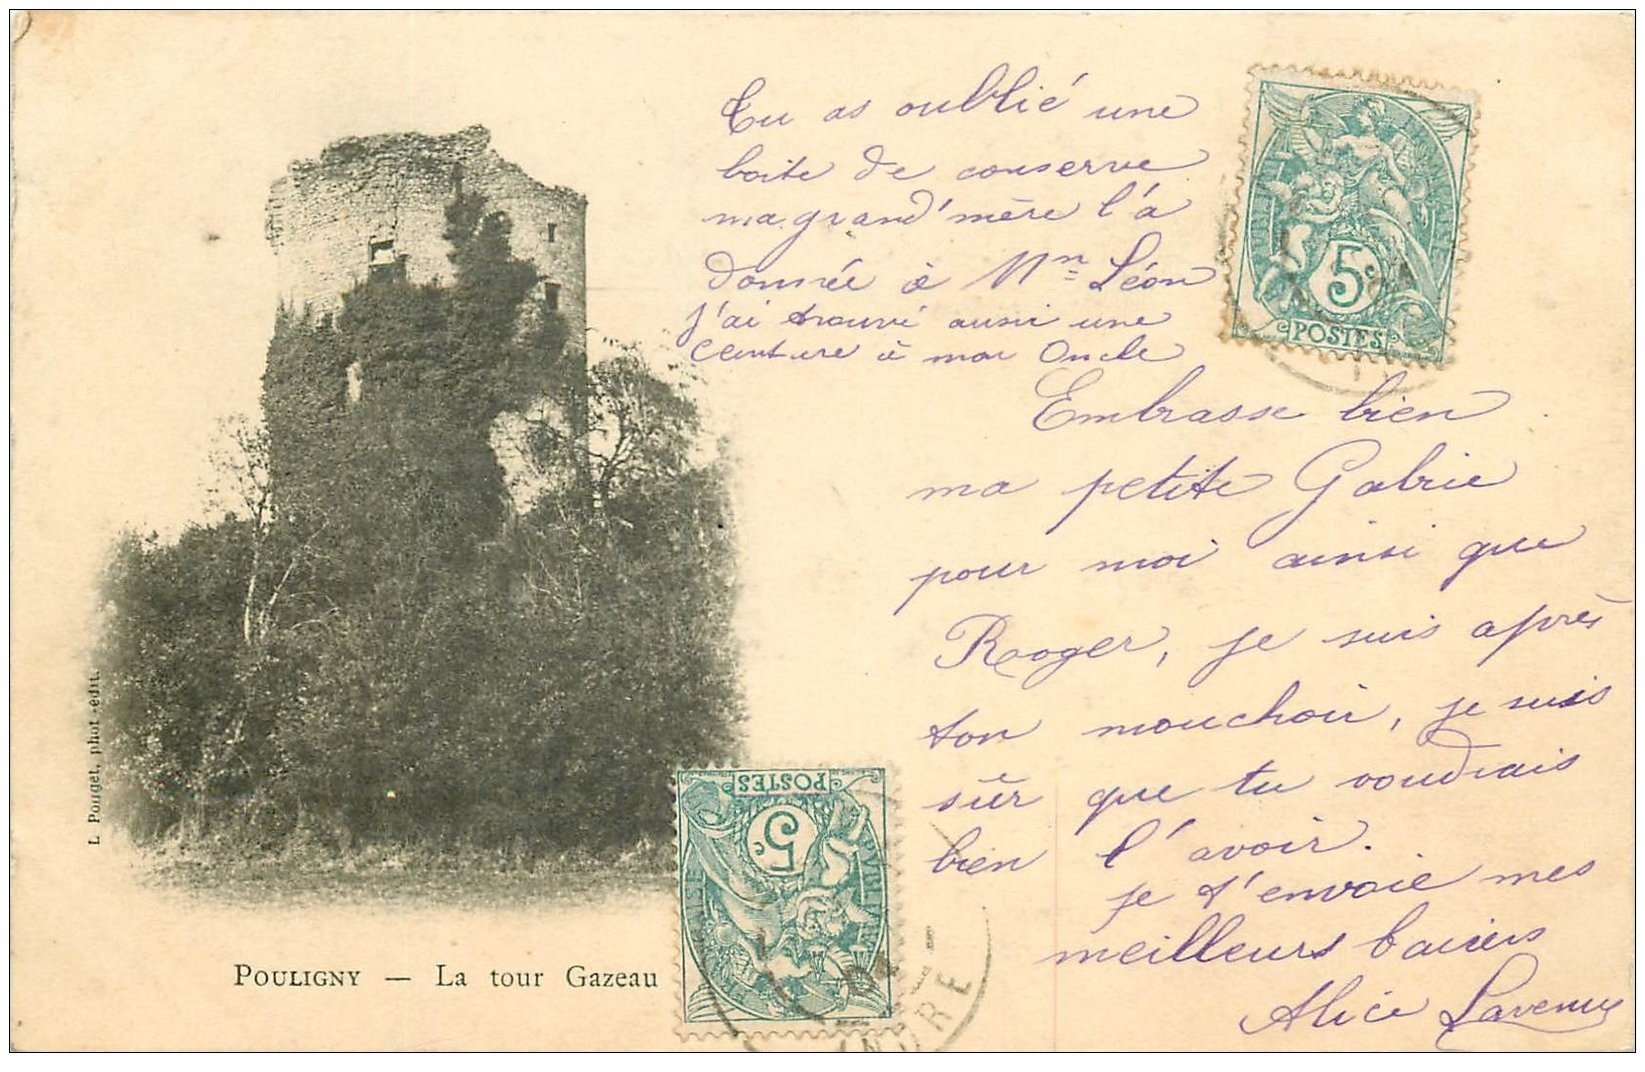 Tu as oublié une
boite de conserve
ma grand'mère l'a
donnée à Mⁿ Léon
j'ai trouvé aussi une
ceinture à mon Oncle
Embrasse bien
ma petite Gabrie
pour moi ainsi que
Rooger, je suis après
ton mouchoir, je suis
sûr que tu voudrais
bien l'avoir.
je t'envoie mes
meilleurs baisers
Alice
5c
POSTES
L. Pouget, phot-edit.
POULIGNY — La tour Gazeau
POSTES
5c
INDRE